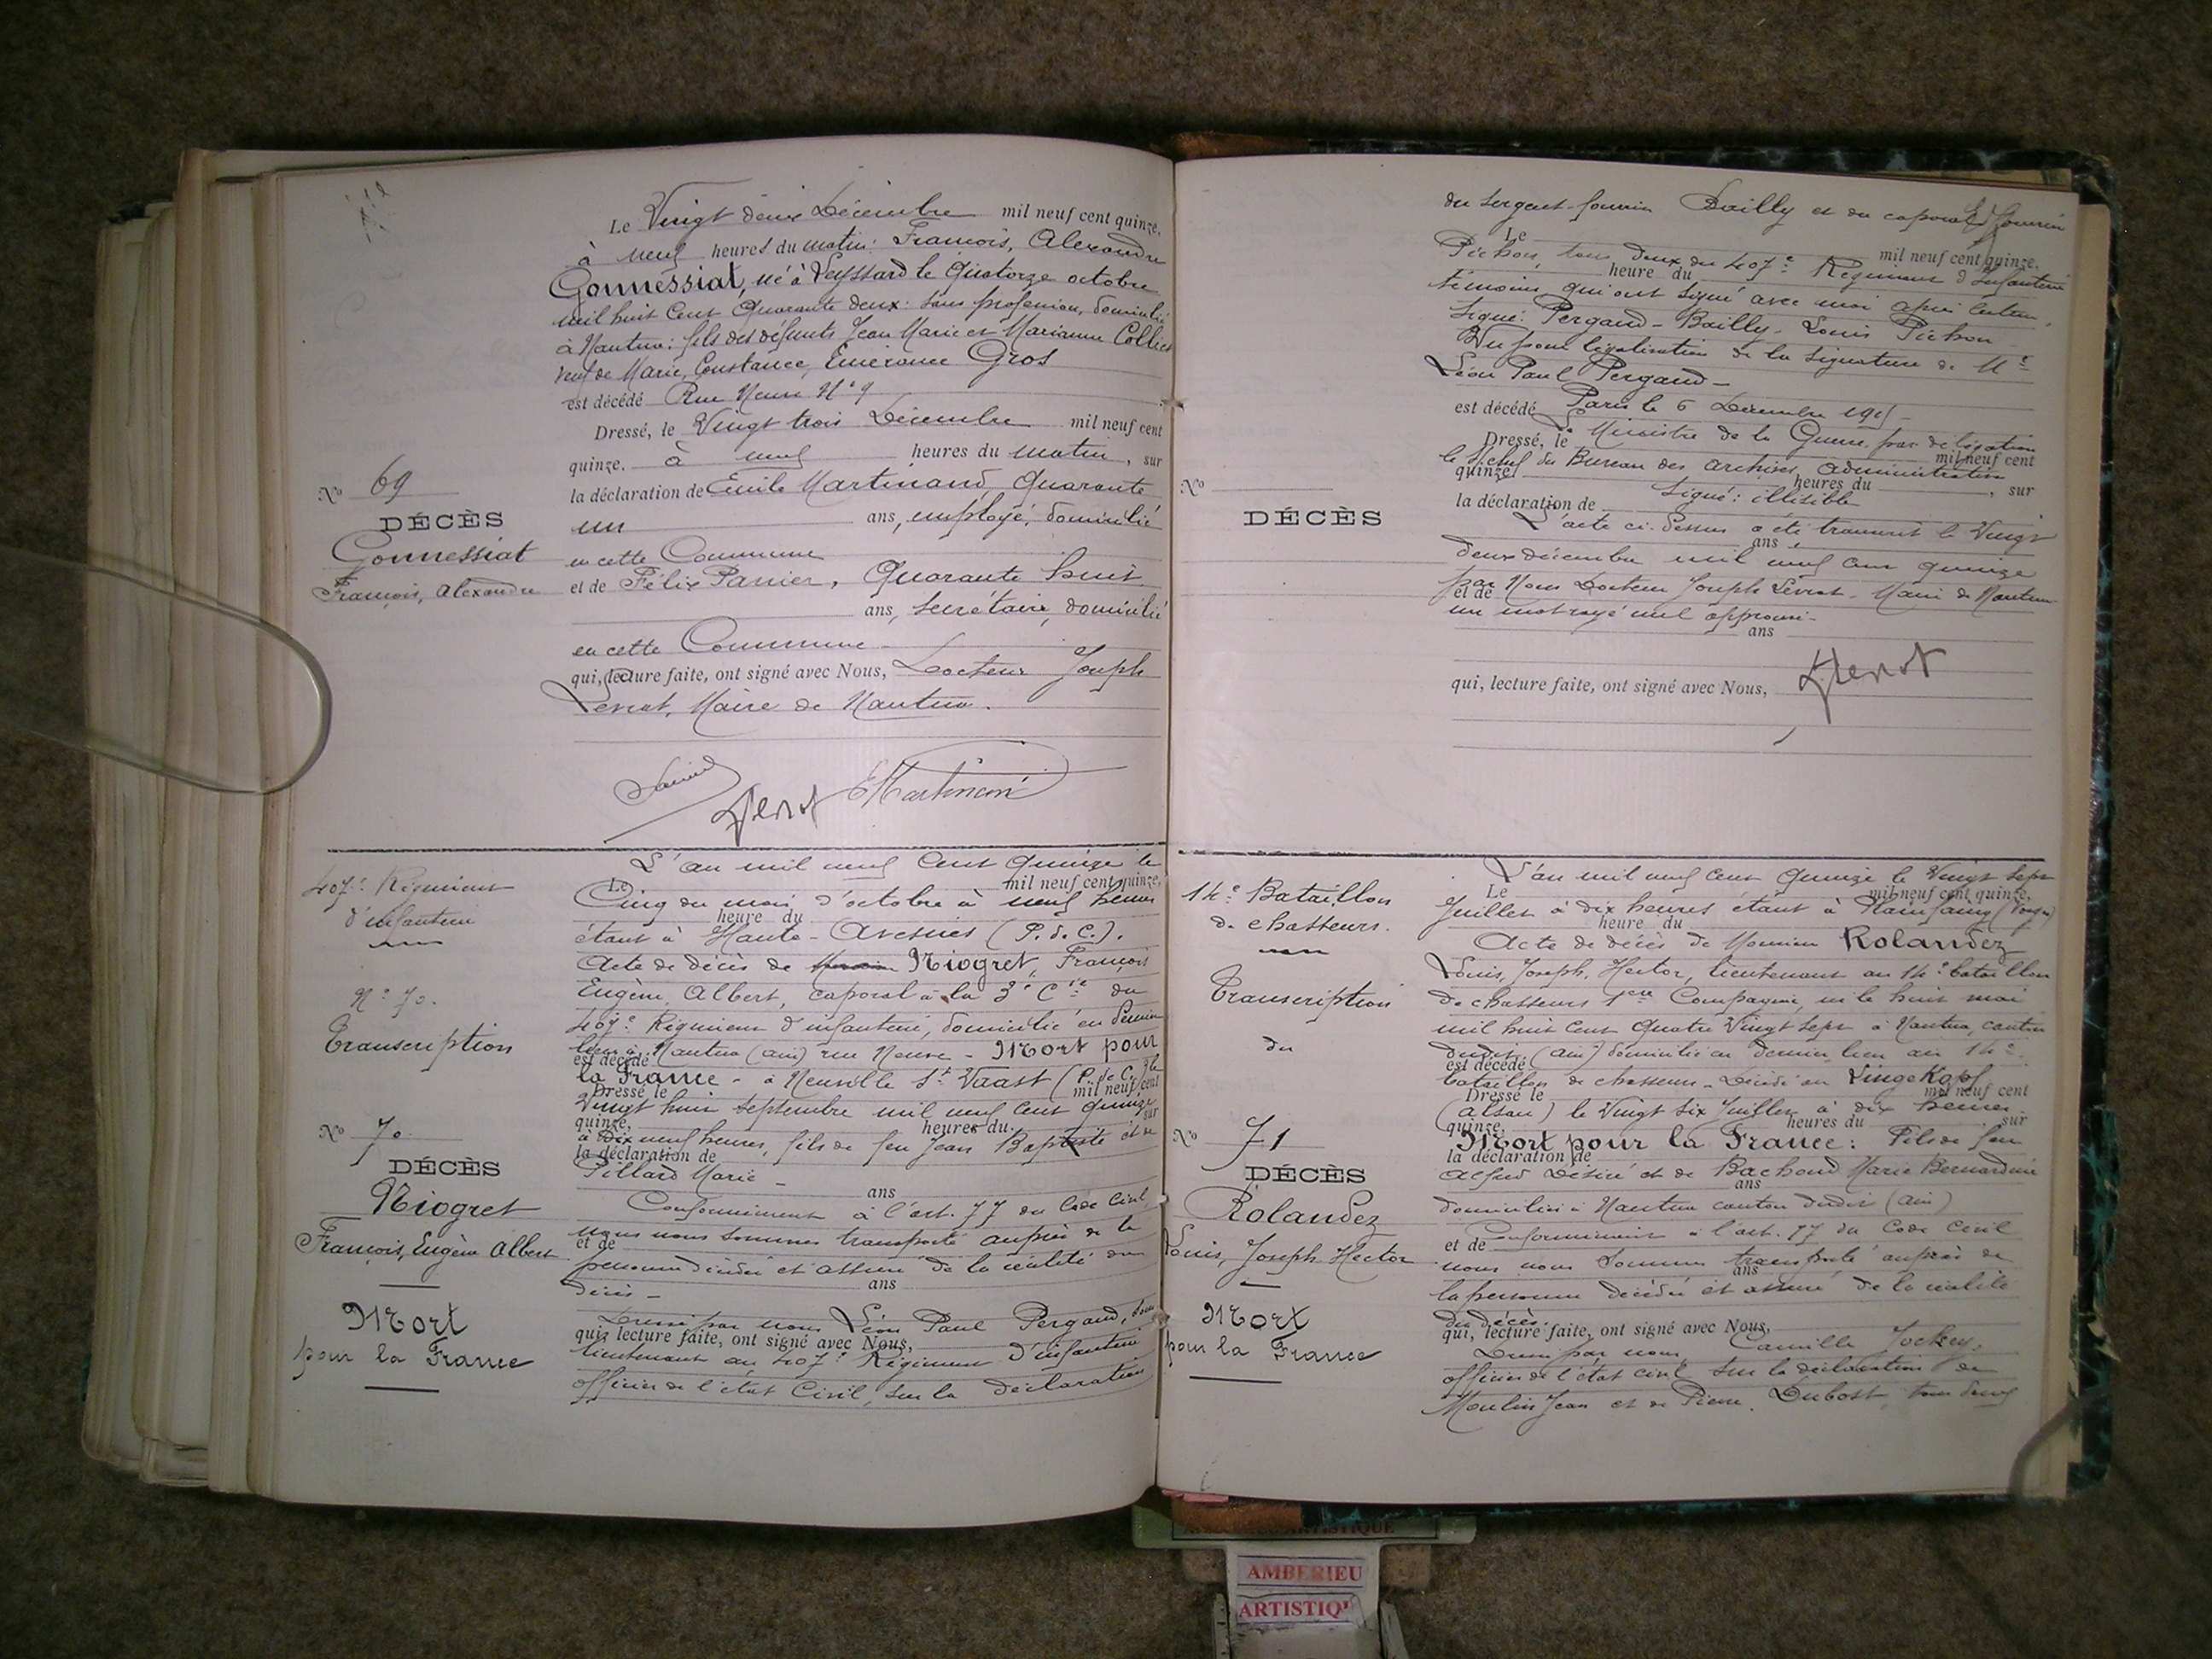 Le Vingt deux Décembre mil neuf cent quinze,
à neuf heures du matin: François, Alexandre
Gonnessiat, né à Leyssard le Quatorze octobre
mil huit Cent Quarante deux: sans profession, domicilié
à Nantua: fils des défunts Jean Marie et Marianne Collet
veuf de Marie, Constance, Emérance Gros
est décédé Rue Neuve N° 9
Dressé, le Vingt trois Décembre mil neuf cent
quinze. à neuf heures du matin, sur
la déclaration de Emile Martinand, Quarante
un ans, employé, domicilié
en cette Commune
et de Félix Panier, Quarante huit
ans, secrétaire, domicilié
en cette Commune
qui, lecture faite, ont signé avec Nous, Docteur Joseph
Levrat, Maire de Nantua.
N° 69
DÉCÈS
Gonnessiat
François, Alexandre
EMartinand
407e Régiment
d'infanterie
N° 70.
Transcription
N° 70
DÉCÈS
Niogret
François, Eugène Albert
Mort
pour la France
L'an mil neuf Cent Quinze le
Le mil neuf cent quinze,
Cinq du mois d'octobre à neuf heures
heure du
étant à Haute-Avesnes (P. de C.).
Acte de décès de Niogret, François
Eugène, Albert, caporal à la 3e Cie du
407e Régiment d'infanterie, domicilié en dernier
lieu à Nantua (Ain) rue Neuve - Mort pour
est décédé
la France - à Neuville St Vaast (P. de C.) le
Dressé le mil neuf cent
Vingt huit Septembre mil neuf cent quinze
quinze, heures du sur
à Dix neuf heures, fils de feu Jean Baptiste et de
la déclaration de
Pillard Marie -
ans
Conformément à l'art. 77 du Code Civil,
nous nous sommes transporté auprès de la
et de
personne décédée et assuré de la réalité du
ans
décès -
Dressé par nous Léon Paul Pergaud, sous
qui, lecture faite, ont signé avec Nous,
lieutenant au 407e Régiment d'infanterie
officier de l'état Civil, sur la déclaration
du sergent-fourrier Bailly et du caporal fourrier
Le mil neuf cent quinze.
Pichon, tous deux du 407e Régiment d'Infanterie
heure du
témoins qui ont signé avec moi après lecture.
Signé: Pergaud - Bailly - Louis Pichon
Vu pour légalisation de la signature de Mr
Léon Paul Pergaud -
est décédé Paris le 6 Décembre 1915 -
Dressé, le Ministre de la Guerre, par délégation
mil neuf cent
le chef du Bureau des archives administratives
quinze heures du , sur
la déclaration de Signé: illisible
L'acte ci-dessus a été transcrit le Vingt
ans
deux décembre mil neuf cent quinze
par Nous Docteur Joseph Levrat - Maire de Nantua
et de
un mot rayé nul approuvé -
ans
qui, lecture faite, ont signé avec Nous,
N°
DÉCÈS
14e Bataillon
de chasseurs.
Transcription
du
N° 71
DÉCÈS
Rolandez
Louis, Joseph Hector
Mort
pour la France
L'an mil neuf cent Quinze le Vingt sept
Le mil neuf cent quinze,
Juillet à dix heures étant à Plainfaing (Vosges)
heure du
Acte de décès de Monsieur Rolandez
Louis, Joseph, Hector, lieutenant au 14e bataillon
de chasseurs 1ere Compagnie, né le huit mai
mil huit Cent Quatre Vingt sept à Nantua, canton
dudit, (Ain) domicilié en dernier lieu au 14e
est décédé
bataillon de chasseurs - Décédé au Linge Kopf
Dressé le mil neuf cent
(Alsace) le Vingt Six Juillet à dix heures
quinze, heures du sur
Mort pour la France: Fils de feu
la déclaration de
Alfred Désiré et de Bachoud Marie Bernardine
ans
domiciliés à Nantua canton dudit (Ain)
et de Conformément à l'art. 77 du Code Civil
nous nous sommes transporté auprès de
ans
la personne décédée et assuré de la réalité
du décès.
qui, lecture faite, ont signé avec Nous,
Dressé par nous Camille Jockey,
officier de l'état civil sur la déclaration de
Moulin Jean et de Pierre Dubost, tous deux
AMBERIEU
ARTISTIQ